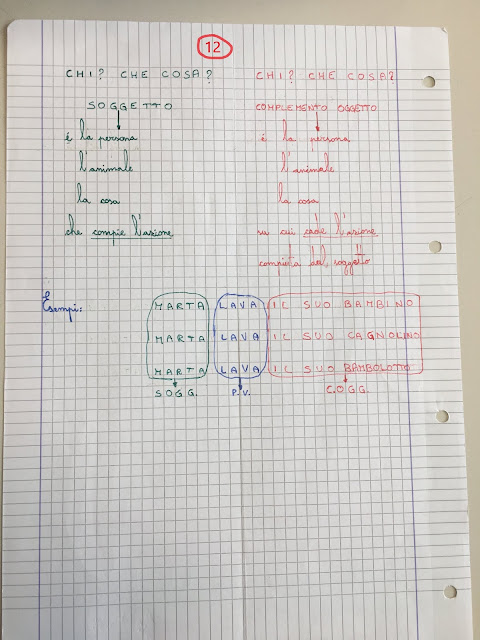 12
CHI? CHE COSA? CHI? CHE COSA?
SOGGETTO COMPLEMENTO OGGETTO
é la persona é la persona
l'animale l'animale
la cosa la cosa
che compie l'azione su cui cade l'azione
compiuta dal soggetto
Esempi: MARTA LAVA IL SUO BAMBINO
MARTA LAVA IL SUO CAGNOLINO
MARTA LAVA IL SUO BAMBOLOTTO
SOGG. P.V. C.OGG.